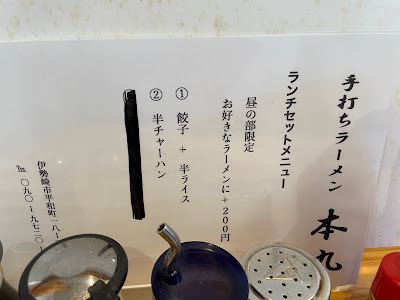 手打ちラーメン 本九
ランチセットメニュー
昼の部限定
お好きなラーメンに+200円
① 餃子 + 半ライス
② 半チャーハン
伊勢崎市平和町一八ー
℡ 〇九〇ー九七二〇ー